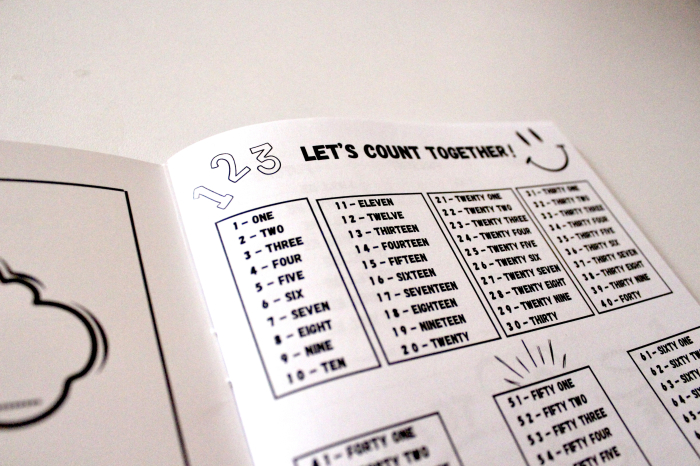 123
LET'S COUNT TOGETHER!
1 - ONE
2 - TWO
3 - THREE
4 - FOUR
5 - FIVE
6 - SIX
7 - SEVEN
8 - EIGHT
9 - NINE
10 - TEN
11 - ELEVEN
12 - TWELVE
13 - THIRTEEN
14 - FOURTEEN
15 - FIFTEEN
16 - SIXTEEN
17 - SEVENTEEN
18 - EIGHTEEN
19 - NINETEEN
20 - TWENTY
21 - TWENTY ONE
22 - TWENTY TWO
23 - TWENTY THREE
24 - TWENTY FOUR
25 - TWENTY FIVE
26 - TWENTY SIX
27 - TWENTY SEVEN
28 - TWENTY EIGHT
29 - TWENTY NINE
30 - THIRTY
31 - THIRTY ONE
32 - THIRTY TWO
33 - THIRTY THREE
34 - THIRTY FOUR
35 - THIRTY FIVE
36 - THIRTY SIX
37 - THIRTY SEVEN
38 - THIRTY EIGHT
39 - THIRTY NINE
40 - FORTY
41 - FORTY ONE
TWO
51 - FIFTY ONE
52 - FIFTY TWO
53 - FIFTY THREE
54 - FIFTY FOUR
FIFTY FIVE
61 - SIXTY ONE
62 - SIXTY
63 - SIXTY
64 -